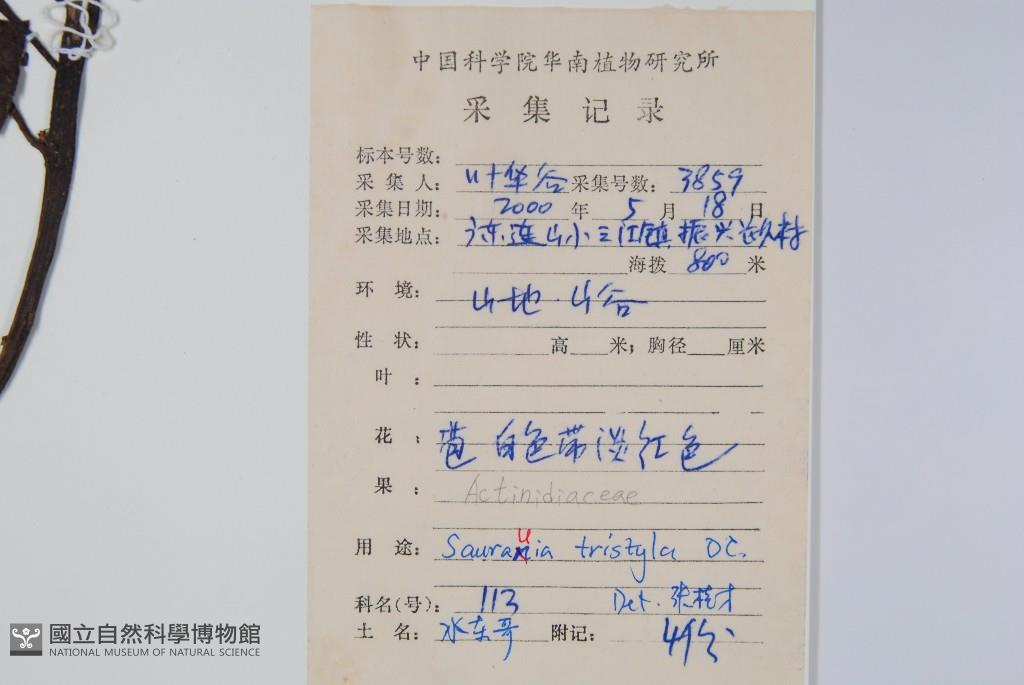 中国科学院华南植物研究所
采集记录
标本号数:
采集人: 叶华谷 采集号数: 3859
采集日期: 2000 年 5 月 18 日
采集地点: 广东连山小三江镇振兴 村
海拨 800 米
环境: 山地.山谷
性状: 高 米; 胸径 厘米
叶:
花: 苞白色带淡红色
果: Actinidiaceae
用途: Saurauia tristyla DC.
科名(号): 113 Det. 张桂才
土名: 水东哥 附记: 4份
國立自然科學博物館
NATIONAL MUSEUM OF NATURAL SCIENCE